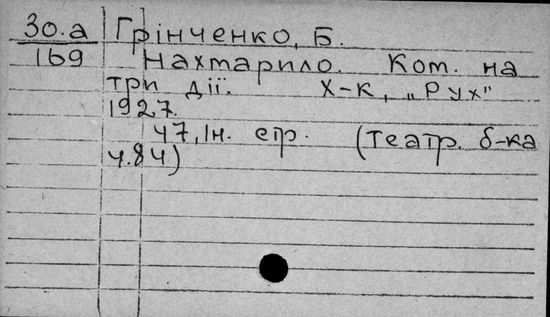 30.а Грінченко, Б.
169 Нахтарило. Ком. на
три дії. Х-к, „Рух"
1927.
47, Ін. стр. (Театр. б-ка
ч.84)